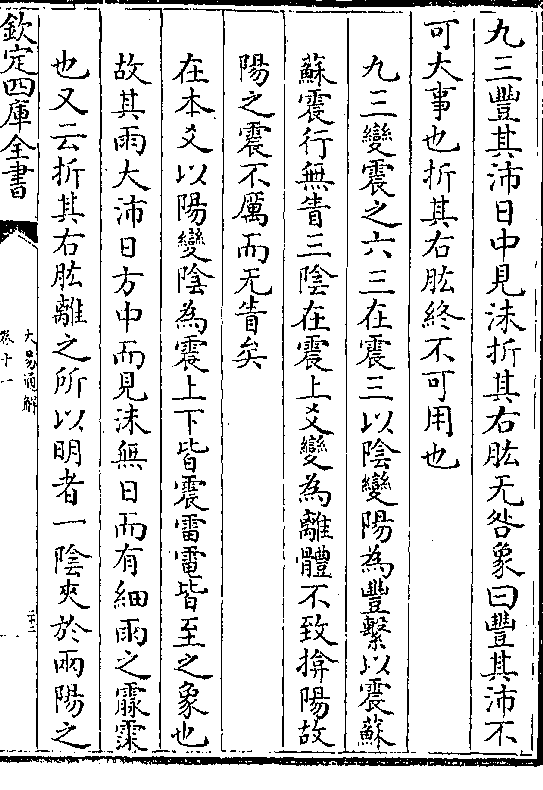 九三豐其沛日中見沬折其右肱无咎象曰豐其沛不
可大事也折其右肱終不可用也
九三變震之六三在震三以陰變陽為豐繫以震蘇
蘇震行無眚三陰在震上爻變為離體不致揜陽故
陽之震不厲而无眚矣
在本爻以陽變陰為震上下皆震雷電皆至之象也
故其雨大沛日方中而見沬無日而有細雨之霡霂
也又云折其右肱離之所以明者一陰夾於兩陽之
欽定四庫全書
大易通解
卷十一